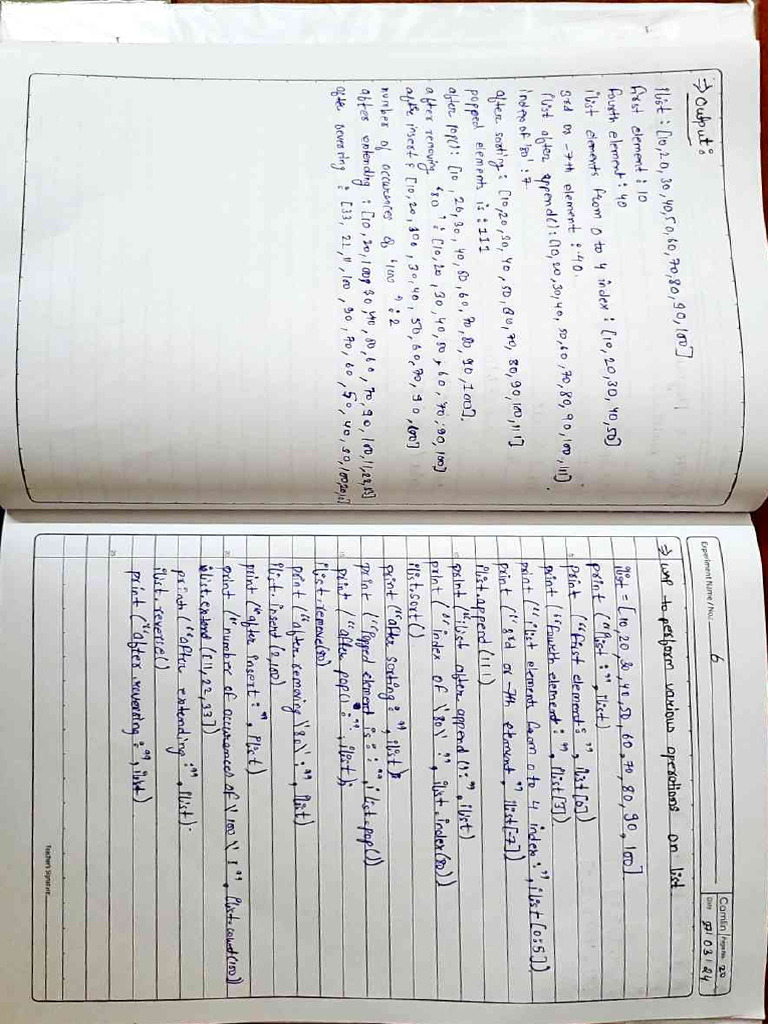 ⇒ Output:
ilist : [10,20,30,40,50,60,70,80,90,100]
first element : 10
fourth element : 40
ilist elements from 0 to 4 index : [10,20,30,40,50]
3rd or -7th element : 40.
ilist after append(): [10,20,30,40,50,60,70,80,90,100,111]
index of '80' : 7
after sorting : [10,20,30,40,50,60,70,80,90,100,111]
popped elements is : 111
after pop(): [10, 20, 30, 40, 50, 60, 70, 80, 90, 100].
after removing '80' : [10, 20, 30, 40, 50, 60, 70, 90, 100]
after insert : [10, 20, 100, 30, 40, 50, 60, 70, 90, 100]
number of occurences of '100' : 2
after extending : [10, 20, 100, 30, 40, 50, 60, 70, 90, 100, 11, 22, 33]
after reversing : [33, 22, 11, 100, 90, 70, 60, 50, 40, 30, 100, 20, 10]
Experiment Name / No.: 6
Camlin Page No. 20
Date 7 / 03 / 24
⇒ WAP to perform various operations on list
ilist = [10, 20, 30, 40, 50, 60, 70, 80, 90, 100]
print ("ilist : ", ilist)
5 print ("First element : ", ilist[0])
print ("Fourth element : ", ilist[3])
print ("ilist elements from 0 to 4 index : ", ilist [0:5])
print ("3rd or -7th element ", ilist[-7])
ilist.append (111)
10 print ("ilist after append () : ", ilist)
print (" index of \'80\' : ", ilist.index(80))
ilist.sort()
print ("after sorting : ", ilist);
print ("Popped element is : ", ilist.pop())
15 print ("after pop() : ", ilist);
ilist.remove(80)
print ("after removing \'80\' : ", ilist)
ilist. insert (2,100)
print ("after insert : ", ilist)
20 print (" number of occurences of \'100\' : ", ilist.count(100))
ilist.extend ([11, 22, 33])
print ("after extending : ", ilist);
ilist.reverse()
print ("after reversing : ", ilist)
25
Teacher's Signature: